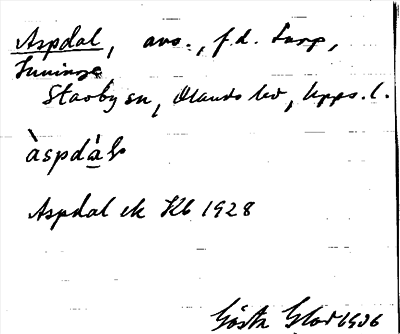 Aspdal, avs., f.d. torp,
Tuninge
Stavby sn, Olands hd, Upps. l.
àspdá̱l
Aspdal ek Kb 1928
Gösta 1936